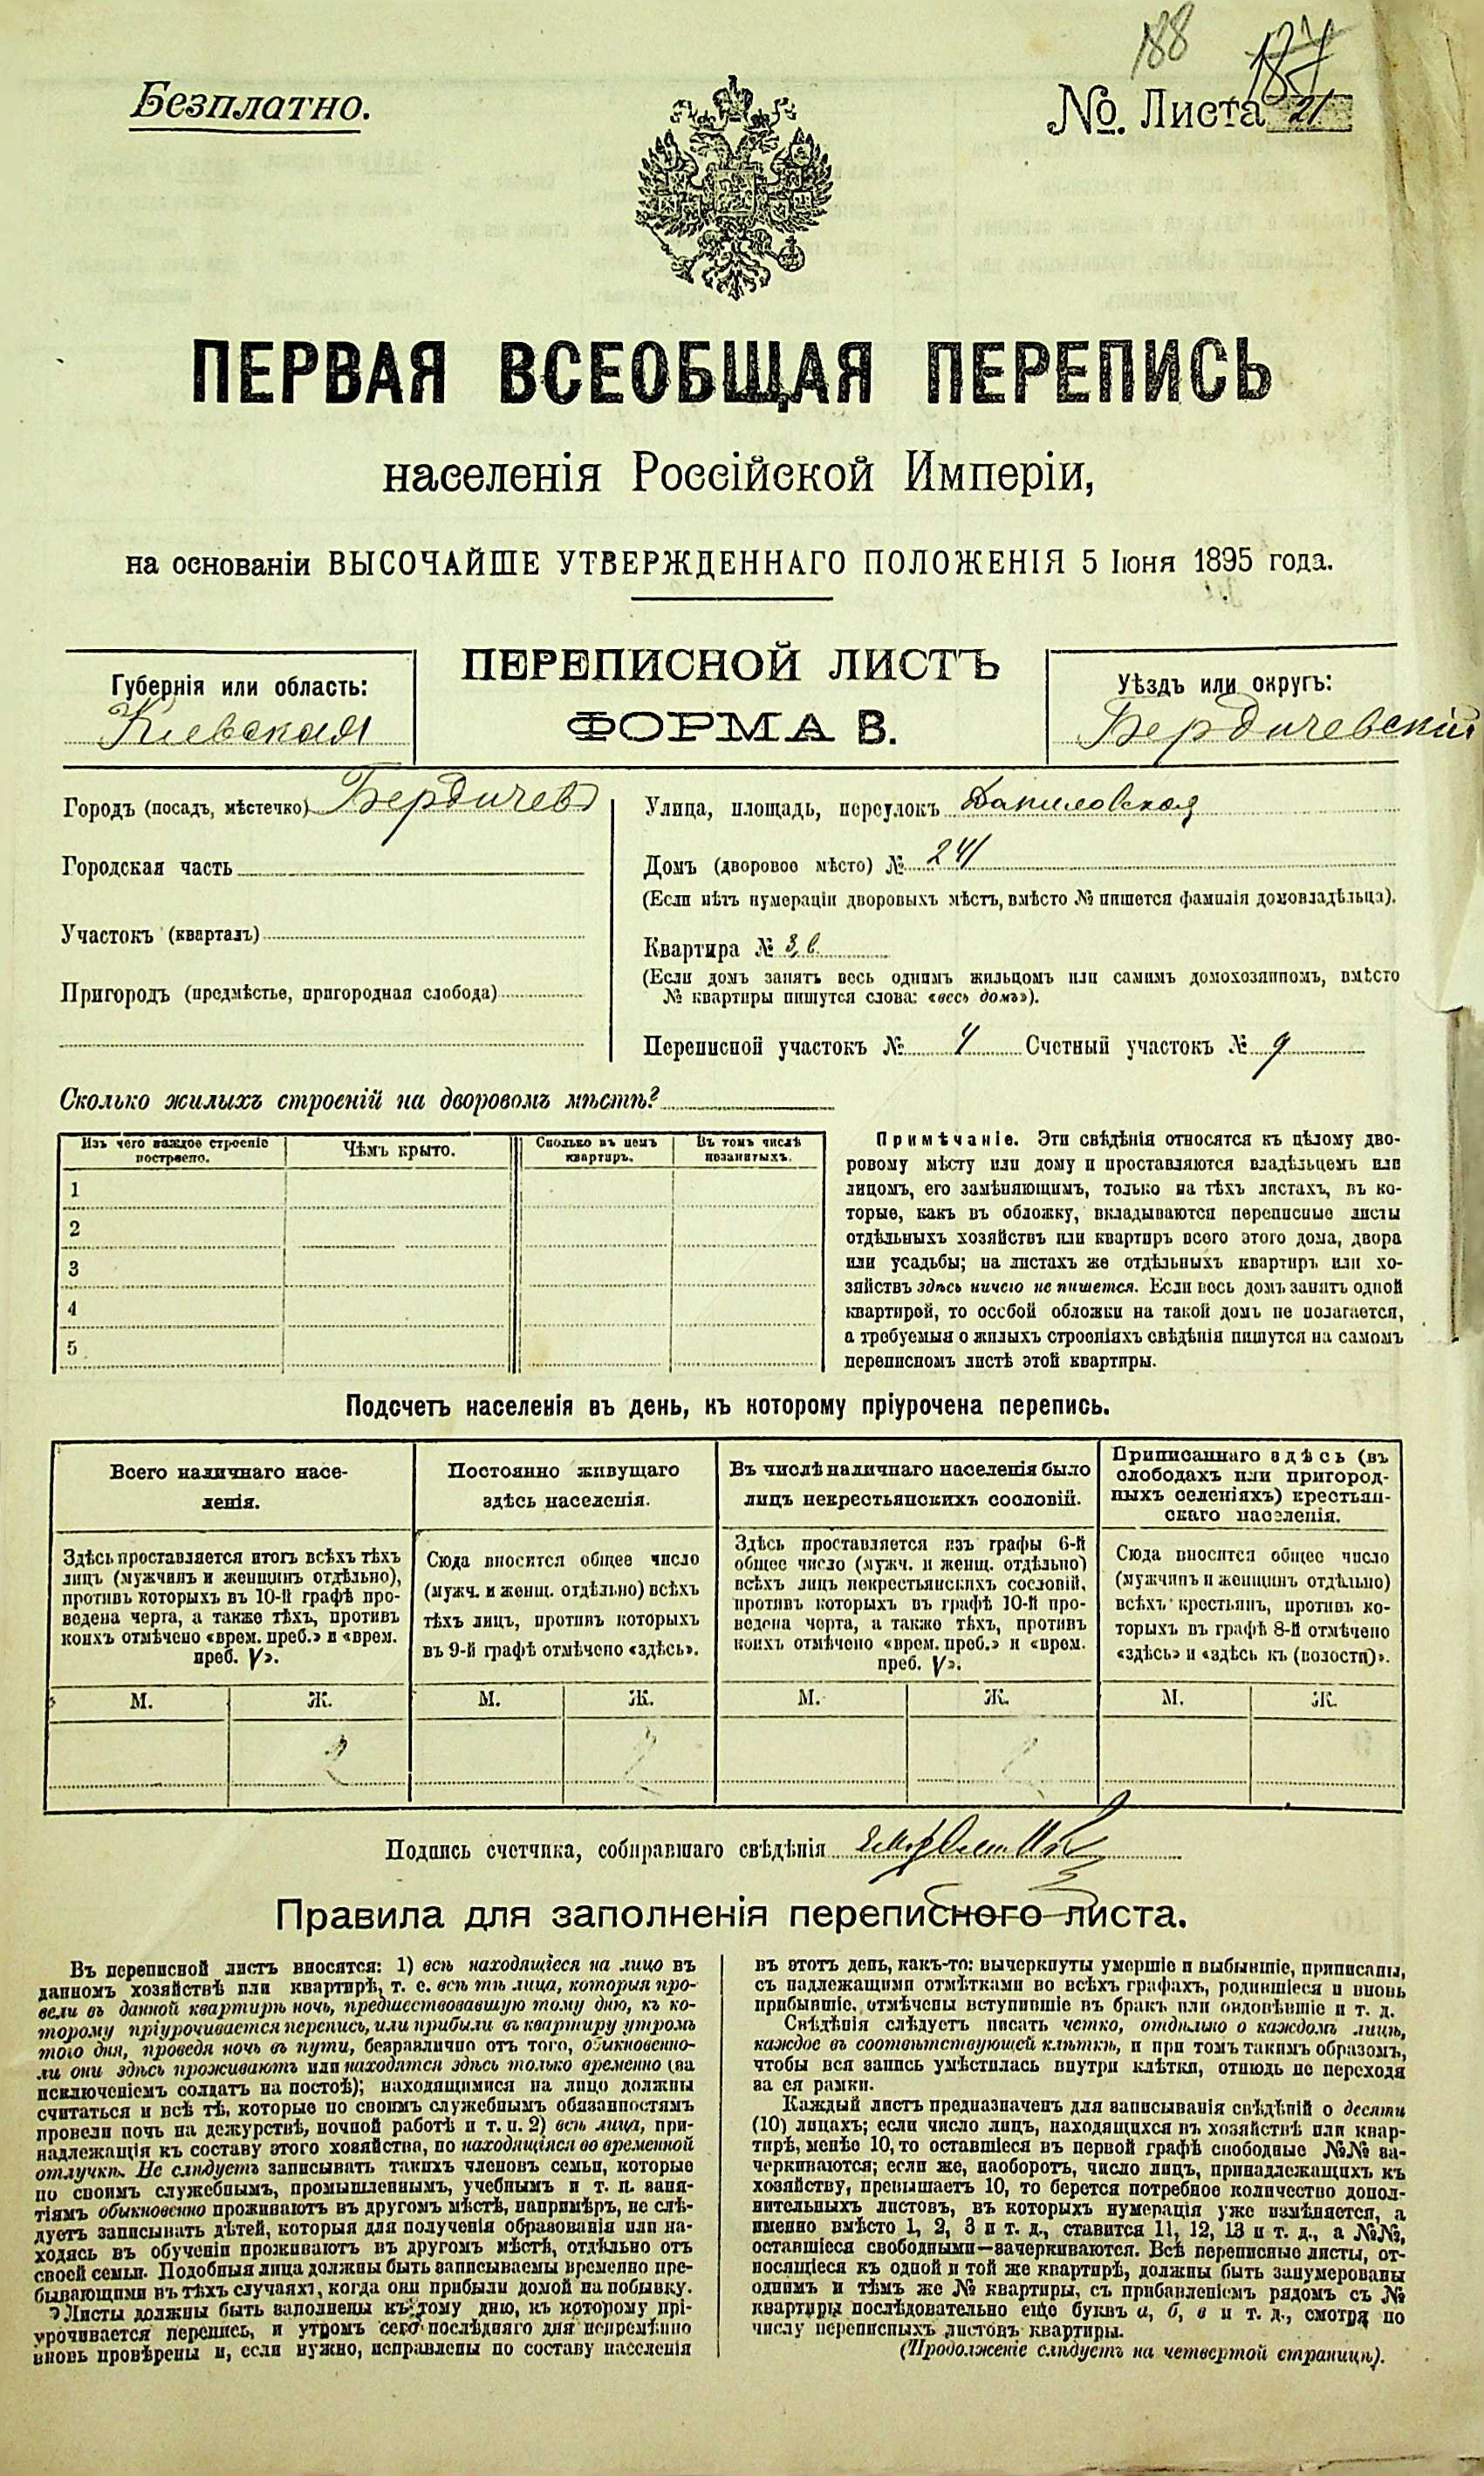 188
187
Безплатно.
№. Листа 21
ПЕРВАЯ ВСЕОБЩАЯ ПЕРЕПИСЬ
населенія Россійской Имперіи,
на основаніи ВЫСОЧАЙШЕ УТВЕРЖДЕННАГО ПОЛОЖЕНІЯ 5 Іюня 1895 года.
ПЕРЕПИСНОЙ ЛИСТЪ
ФОРМА В.
Губернія или область:
Кіевская
Уѣздъ или округъ:
Бердичевскій
Городъ (посадъ, мѣстечко) Бердичевъ
Городская часть
Участокъ (кварталъ)
Пригородъ (предмѣстье, пригородная слобода)
Улица, площадь, переулокъ Даниловская
Домъ (дворовое мѣсто) № 241
(Если нѣтъ нумераціи дворовыхъ мѣстъ, вмѣсто № пишется фамилія домовладѣльца).
Квартира № 3, в.
(Если домъ занятъ весь однимъ жильцомъ или самимъ домохозяиномъ, вмѣсто
№ квартиры пишутся слова: «весь домъ»).
Переписной участокъ № 4 Счетный участокъ № 9
Сколько жилыхъ строеній на дворовомъ мѣстѣ?
Изъ чего каждое строеніе
построено.
Чѣмъ крыто.
Сколько въ немъ
квартиръ.
Въ томъ числѣ
незанятыхъ.
1
2
3
4
5
Примѣчаніе. Эти свѣдѣнія относятся къ цѣлому дво-
ровому мѣсту или дому и проставляются владѣльцемъ или
лицомъ, его замѣняющимъ, только на тѣхъ листахъ, въ ко-
торые, какъ въ обложку, вкладываются переписные листы
отдѣльныхъ хозяйствъ или квартиръ всего этого дома, двора
или усадьбы; на листахъ же отдѣльныхъ квартиръ или хо-
зяйствъ здѣсь ничего не пишется. Если весь домъ занятъ одной
квартирой, то особой обложки на такой домъ не полагается,
а требуемыя о жилыхъ строеніяхъ свѣдѣнія пишутся на самомъ
переписномъ листѣ этой квартиры.
Подсчетъ населенія въ день, къ которому пріурочена перепись.
Всего наличнаго насе-
ленія.
Здѣсь проставляется итогъ всѣхъ тѣхъ
лицъ (мужчинъ и женщинъ отдѣльно),
противъ которыхъ въ 10-й графѣ про-
ведена черта, а также тѣхъ, противъ
коихъ отмѣчено «врем. преб.» и «врем.
преб. V».
Постоянно живущаго
здѣсь населенія.
Сюда вносится общее число
(мужч. и женщ. отдѣльно) всѣхъ
тѣхъ лицъ, противъ которыхъ
въ 9-й графѣ отмѣчено «здѣсь».
Въ числѣ наличнаго населенія было
лицъ некрестьянскихъ сословій.
Здѣсь проставляется изъ графы 6-й
общее число (мужч. и женщ. отдѣльно)
всѣхъ лицъ некрестьянскихъ сословій,
противъ которыхъ въ графѣ 10-й про-
ведена черта, а также тѣхъ, противъ
коихъ отмѣчено «врем. преб.» и «врем.
преб. V».
Приписаннаго здѣсь (въ
слободахъ или пригород-
ныхъ селеніяхъ) крестьян-
скаго населенія.
Сюда вносится общее число
(мужчинъ и женщинъ отдѣльно)
всѣхъ крестьянъ, противъ ко-
торыхъ въ графѣ 8-й отмѣчено
«здѣсь» и «здѣсь къ (волости)».
М. Ж. М. Ж. М. Ж. М. Ж.
2 2 2
Подпись счетчика, собиравшаго свѣдѣнія
Правила для заполненія переписного листа.
Въ переписной листъ вносятся: 1) всѣ находящіеся на лицо въ
данномъ хозяйствѣ или квартирѣ, т. е. всѣ тѣ лица, которыя про-
вели въ данной квартирѣ ночь, предшествовавшую тому дню, къ ко-
торому пріурочивается перепись, или прибыли въ квартиру утромъ
того дня, проведя ночь въ пути, безразлично отъ того, обыкновенно-
ли они здѣсь проживаютъ или находятся здѣсь только временно (за
исключеніемъ солдатъ на постоѣ); находящимися на лицо должны
считаться и всѣ тѣ, которые по своимъ служебнымъ обязанностямъ
провели ночь на дежурствѣ, ночной работѣ и т. п. 2) всѣ лица, при-
надлежащія къ составу этого хозяйства, но находящіяся во временной
отлучкѣ. Не слѣдуетъ записывать такихъ членовъ семьи, которые
по своимъ служебнымъ, промышленнымъ, учебнымъ и т. п. заня-
тіямъ обыкновенно проживаютъ въ другомъ мѣстѣ, напримѣръ, не слѣ-
дуетъ записывать дѣтей, которыя для полученія образованія или на-
ходясь въ обученіи проживаютъ въ другомъ мѣстѣ, отдѣльно отъ
своей семьи. Подобныя лица должны быть записываемы временно пре-
бывающими въ тѣхъ случаяхъ, когда они прибыли домой на побывку.
Листы должны быть заполнены къ тому дню, къ которому прі-
урочивается перепись, и утромъ сего послѣдняго дня непремѣнно
вновь провѣрены и, если нужно, исправлены по составу населенія
въ этотъ день, какъ-то: вычеркнуты умершіе и выбывшіе, приписаны,
съ надлежащими отмѣтками во всѣхъ графахъ, родившіеся и вновь
прибывшіе, отмѣчены вступившіе въ бракъ или овдовѣвшіе и т. д.
Свѣдѣнія слѣдуетъ писать четко, отдѣльно о каждомъ лицѣ,
каждое въ соотвѣтствующей клѣткѣ, и при томъ такимъ образомъ,
чтобы вся запись умѣстилась внутри клѣтки, отнюдь не переходя
за ея рамки.
Каждый листъ предназначенъ для записыванія свѣдѣній о десяти
(10) лицахъ; если число лицъ, находящихся въ хозяйствѣ или квар-
тирѣ, менѣе 10, то оставшіеся въ первой графѣ свободные №№ за-
черкиваются; если же, наоборотъ, число лицъ, принадлежащихъ къ
хозяйству, превышаетъ 10, то берется потребное количество допол-
нительныхъ листовъ, въ которыхъ нумерація уже измѣняется, а
именно вмѣсто 1, 2, 3 и т. д., ставится 11, 12, 13 и т. д., а №№,
оставшіеся свободными—зачеркиваются. Всѣ переписные листы, от-
носящіеся къ одной и той же квартирѣ, должны быть занумерованы
однимъ и тѣмъ же № квартиры, съ прибавленіемъ рядомъ съ №
квартиры послѣдовательно еще буквъ а, б, в и т. д., смотря по
числу переписныхъ листовъ квартиры.
(Продолженіе слѣдуетъ на четвертой страницѣ).